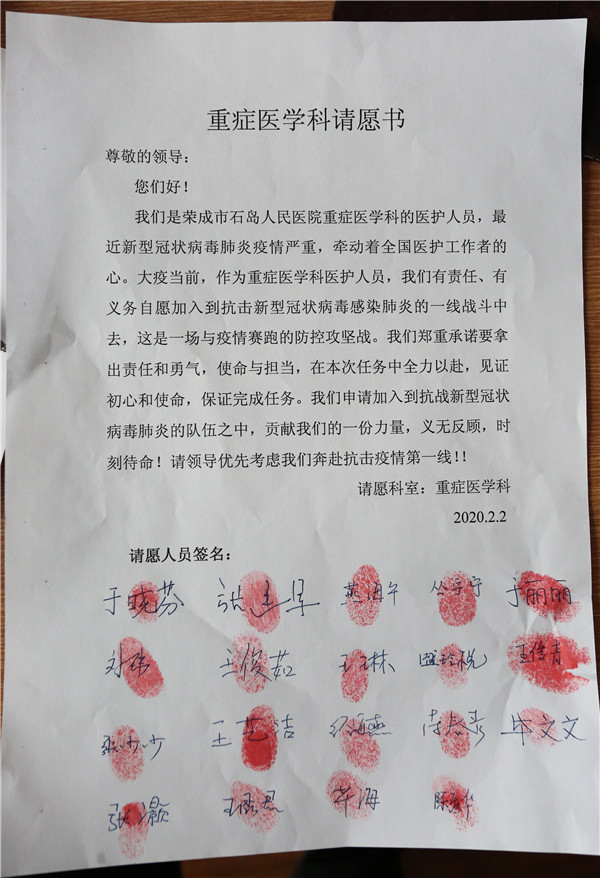 重症医学科请愿书
尊敬的领导：
您们好！
我们是荣成市石岛人民医院重症医学科的医护人员，最
近新型冠状病毒肺炎疫情严重，牵动着全国医护工作者的
心。大疫当前，作为重症医学科医护人员，我们有责任、有
义务自愿加入到抗击新型冠状病毒感染肺炎的一线战斗中
去，这是一场与疫情赛跑的防控攻坚战。我们郑重承诺要拿
出责任和勇气，使命与担当，在本次任务中全力以赴，见证
初心和使命，保证完成任务。我们申请加入到抗战新型冠状
病毒肺炎的队伍之中，贡献我们的一份力量，义无反顾，时
刻待命！请领导优先考虑我们奔赴抗击疫情第一线！！
请愿科室：重症医学科
2020.2.2
请愿人员签名：
于晓芬 于丽丽
王俊茹
王艺洁 毕文文
张灏